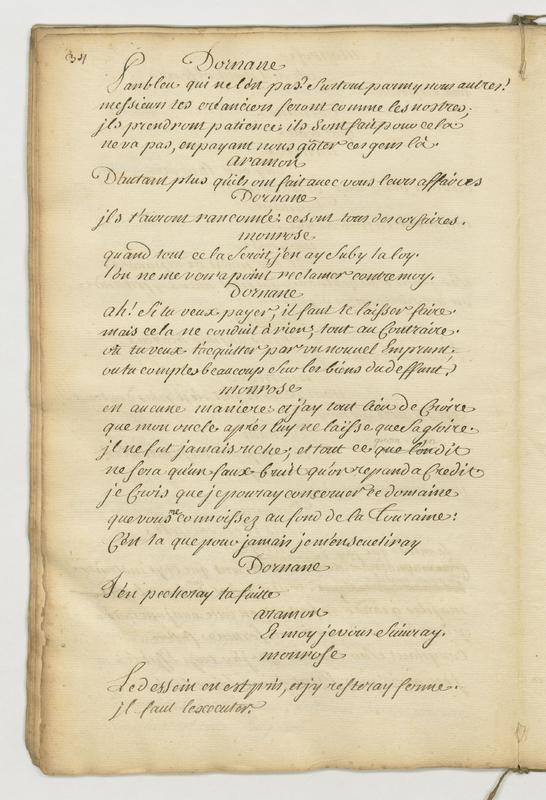 34
Dornane
Parbleu qui ne l'est pas? Surtout parmy nous autres!
messieurs tes créanciers feront comme les nostres;
jls prendront patience ils sont fait pour cela
ne va pas, en payant nous gâter ces gens là.
aramon
D'autant plus qu'ils ont fait avec vous leurs affaires
Dornane
jls t'auront rançonné: ce sont tous des corsaires.
monrose
quand tout cela seroit, j'en ay suby la loy.
l'on ne me verra point reclamer contre moy.
Dornane
ah! Si tu veux payer, il faut te laisser faire.
mais cela ne conduit à rien; tout au Contraire.
où tu veux t'acquitter par un nouvel Emprunt.
ou tu comptes beaucoup sur les biens du deffunt?
monrose
en aucune maniere: et j'ay tout lieu de Croire
que mon oncle après luy ne laisse que sa gloire.
jl ne fut jamais riche; et tout ce que l'on dit
ne sera qu'un faux bruit qu'on repand a Credit
je Crois que je pouray conserver ce domaine
que vous me connoissez au fond de la Touraine:
C'est la que pour jamais je m'enseveliray
Dornane
J'en pecheray ta fuitte
aramon
Et moy je vous Suivray.
monrose
Le dessein en est pris, et j'y resteray ferme.
jl faut l'executer.